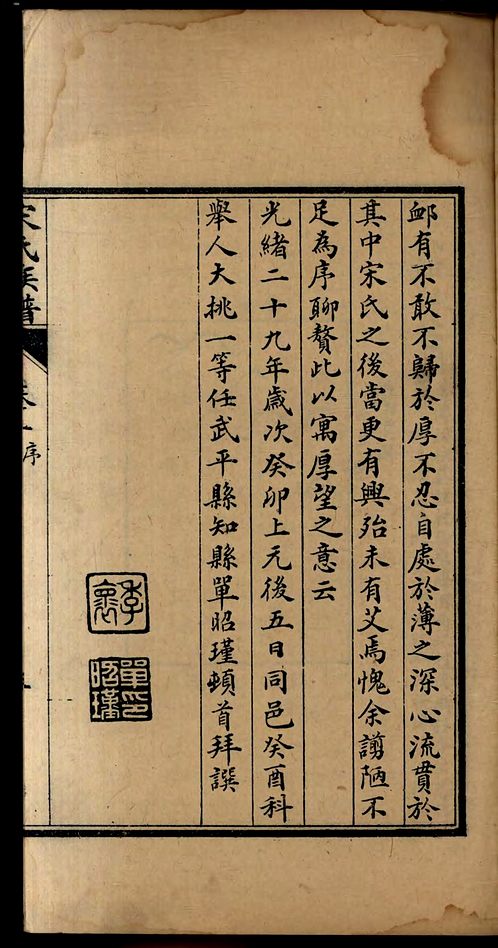 邮有不敢不歸於厚不忍自處於薄之深心流貫於
其中宋氏之後當更有興殆未有艾焉愧余謭陋不
足為序聊贅此以寓厚望之意云
光緒二十九年歲次癸卯上元後五日同邑癸酉科
舉人大挑一等任武平縣知縣單昭瑾頓首拜譔
季懷
單昭瑾印
宋氏族譜
卷一 序